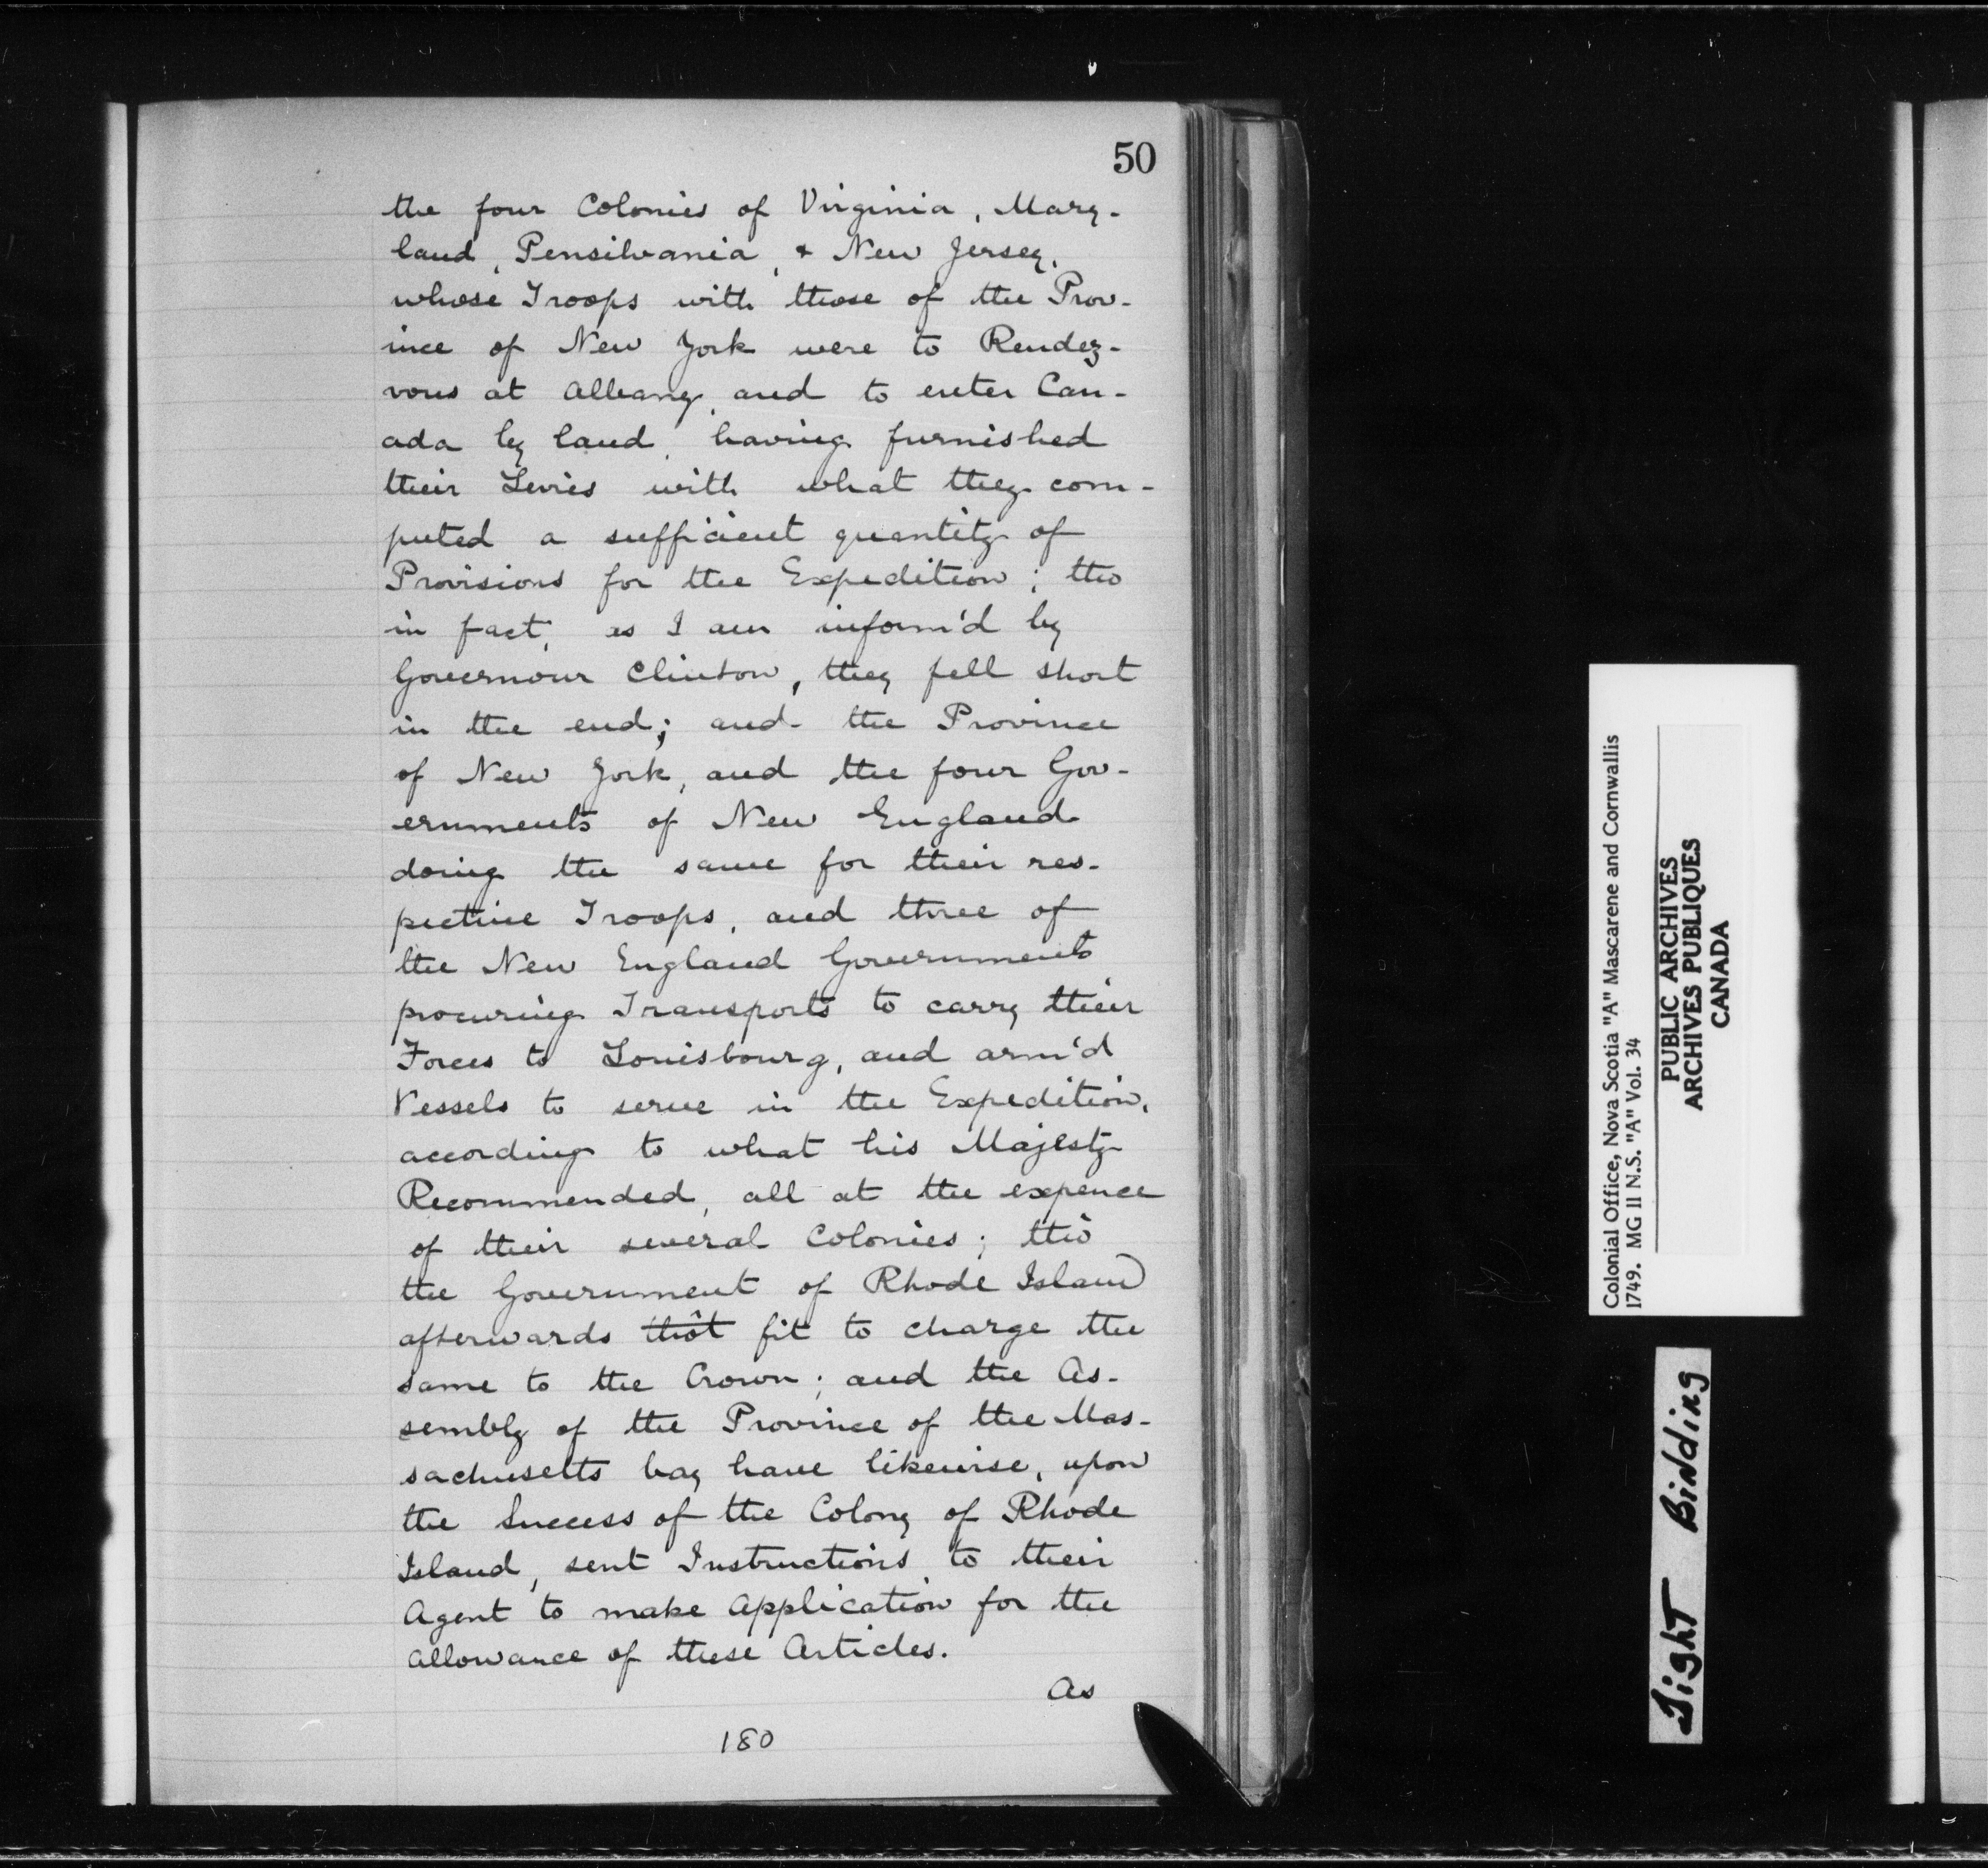 50
the four Colonies of Virginia, Mary-
land, Pensilvania, & New Jersey,
whose Troops with those of the Prov-
ince of New York were to Rendez-
vous at Albany, and to enter Can-
ada by land, having furnished
their Levies with what they com-
puted a sufficient quantity of
Provisions for the Expedition; tho
in fact, as I am inform'd by
Governour Clinton, they fell short
in the end; and the Province
of New York, and the four Gov-
ernments of New England
doing the same for their res-
pective Troops, and three of
the New England Governments
procuring Transports to carry their
Forces to Louisbourg, and arm'd
Vessels to serve in the Expedition,
according to what his Majesty
Recommended, all at the expence
of their several Colonies; tho
the Government of Rhode Island
afterwards thôt fit to charge the
same to the Crown; and the As-
sembly of the Province of the Mas-
sachusetts bay have likewise, upon
the Success of the Colony of Rhode
Island, sent Instructions to their
Agent to make Application for the
allowance of these Articles.
As
180
Colonial Office, Nova Scotia "A" Mascarene and Cornwallis
1749. MG 11 N.S. "A" Vol. 34
PUBLIC ARCHIVES
ARCHIVES PUBLIQUES
CANADA
Tight Binding